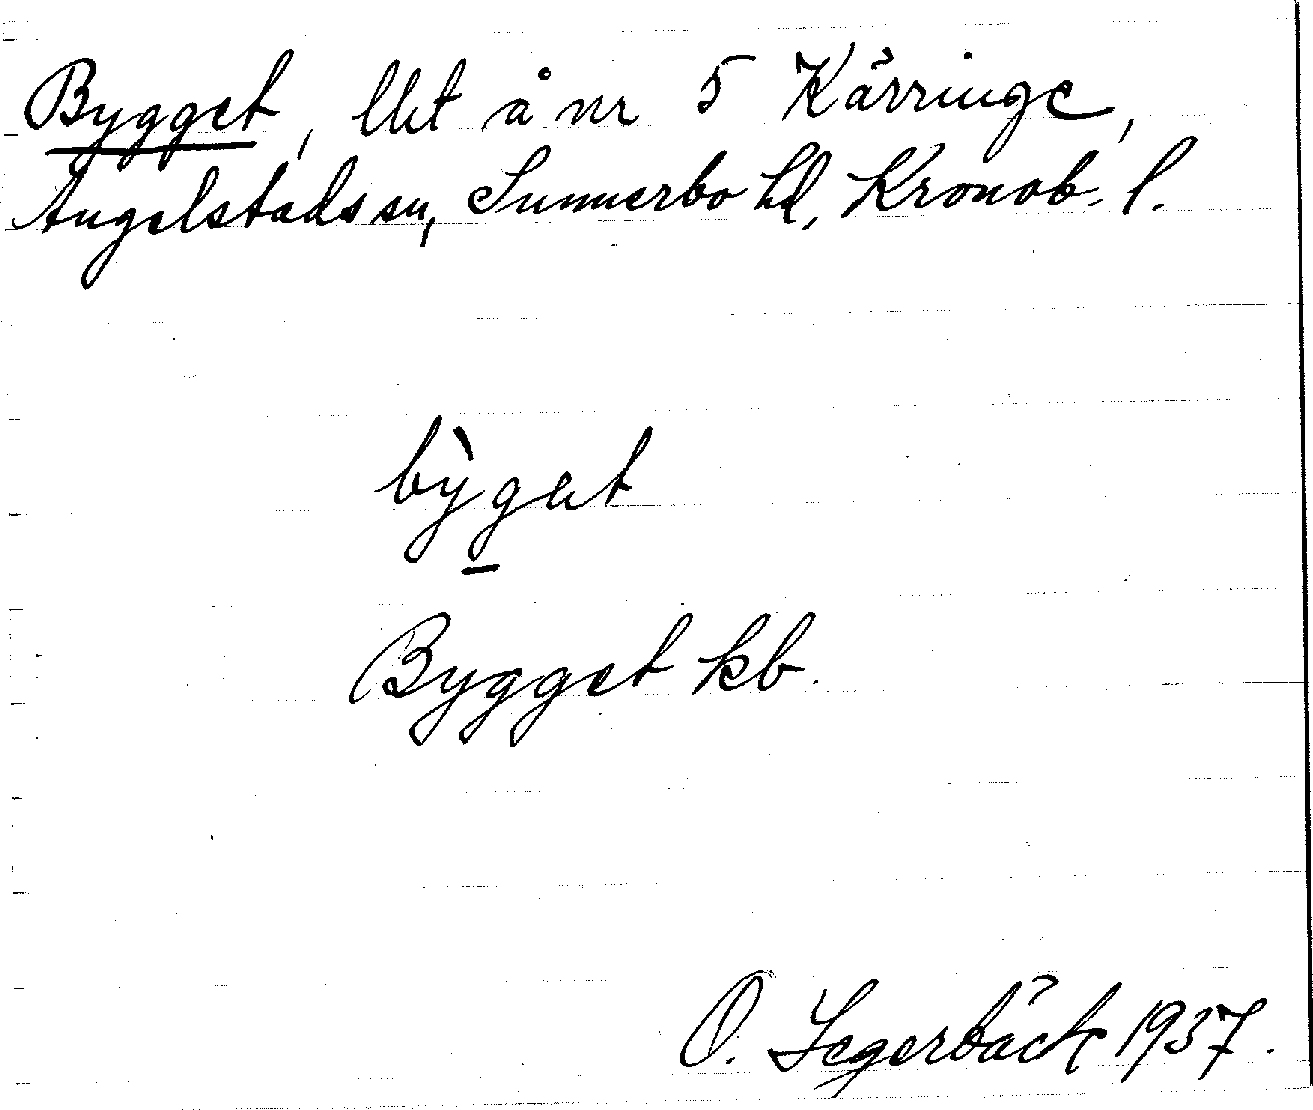 Bygget, lht å nr 5 Kärringe,
Angelstads sn, Sunnerbo hd, Kronob. l.
bỳgat
Bygget kb.
O. Segerbäck 1937.